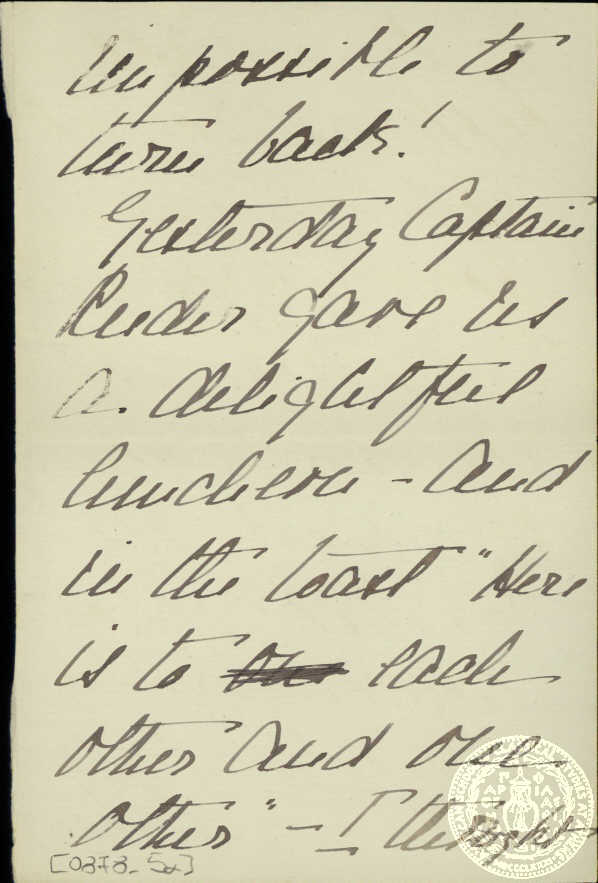 impossible to
turn back!
Yesterday Captain
Ruder gave us
a delightful
luncheon - and
in the toast "Here
is to one each
other and one
other" - I thought
[0878-5x]